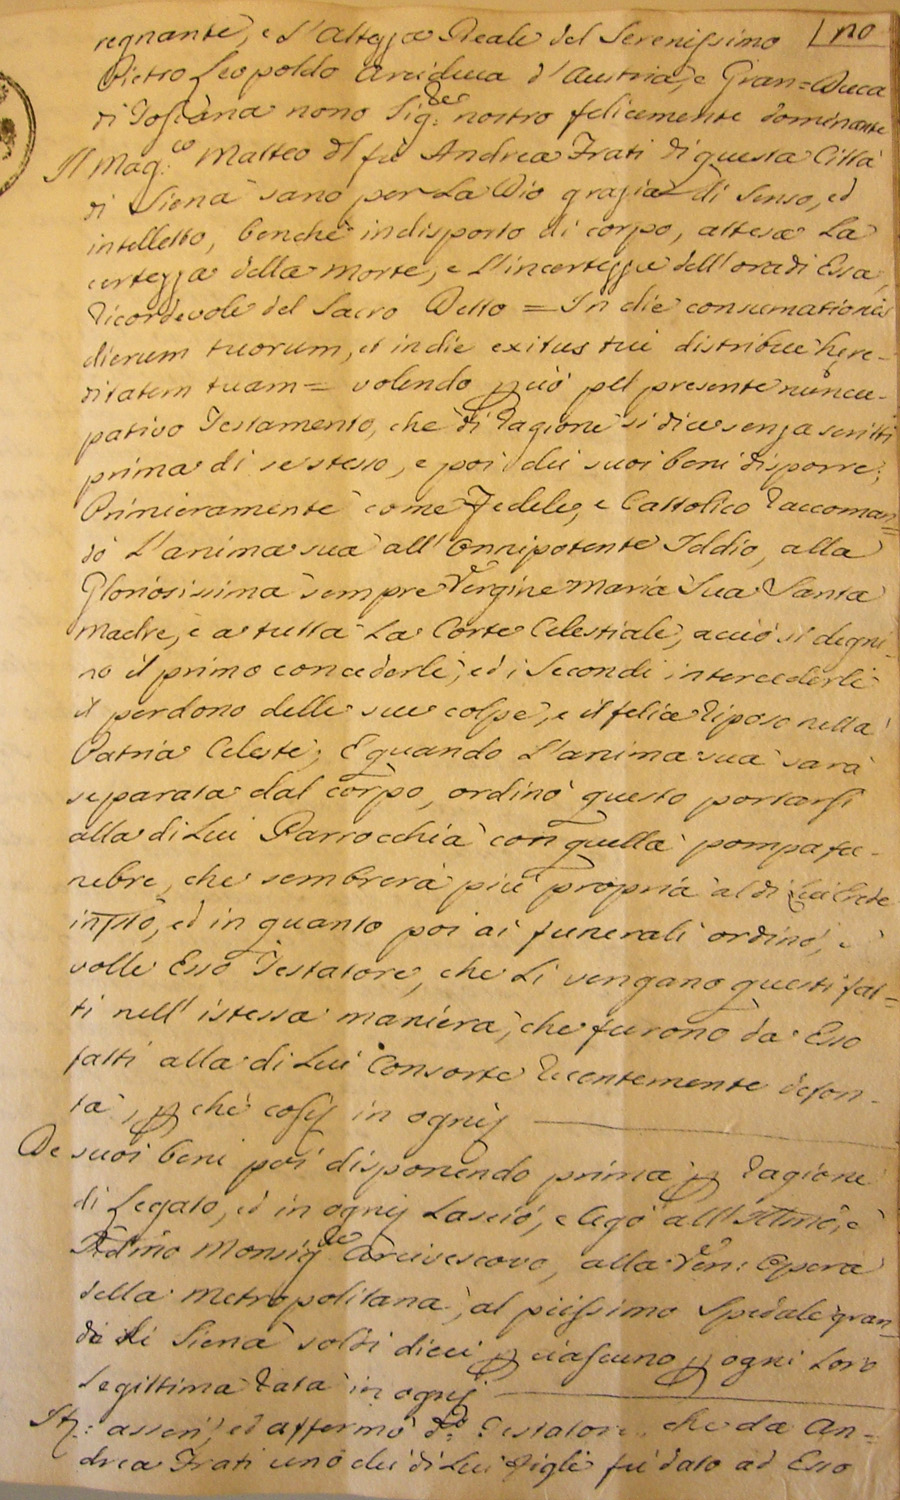 regnante, e l'Altezza Reale del Serenissimo
110
Pietro Leopoldo Arciduca d'Austria, e Gran=Duca
di Toscana nono Sig:re nostro felicemente dominante
Il Mag:co Matteo del fù Andrea Frati di questa Città
di Siena sano per La Dio grazia di senso, ed
intelletto, benche indisposto di corpo, attesa La
certezza della morte, e L'incertezza dell'ora di Essa,
Ricordevole del Sacro Detto = In die consumationis
dierum tuorum, et in die exitus tui distribue here-
ditatem tuam = volendo p ciò pel presente nuncu-
pativo Testamento, che di ragione si dice senza scritti
prima di se stesso, e poi dei suoi beni disporre;
Primieramente come Fedele, e Cattolico Raccoman=
dò L'anima sua all'Onnipotente Iddio, alla
Gloriosissima sempre Vergine Maria Sua Santa
Madre, e a tutta La Corte Celestiale, acciò si degni-
no il primo concederli, ed i Secondi intercederli
il perdono delle sue colpe, e il felice Riposo nella
Patria Celeste; E quando L'anima sua sarà
separata dal corpo, ordinò questo portarsi
alla di Lui Parrocchia con quella pompa fu-
nebre, che sembrerà più propria al di Lui Erede
infrto, ed in quanto poi ai funerali ordinò, e
volle Esso Testatore, che Li vengano questi fat=
ti nell'istessa maniera, che furono da Esso
fatti alla di Lui Consorte Recentemente defon-
ta, p che così in ogni
De suoi beni poi disponendo prima p ragione
di Legato, ed in ogni Lasciò, e legò all'Illmo, e
Rdmo Monsig:re Arcivescovo, alla Ven: Opera
della Metropolitana, al piissimo Spedale gran=
de di Siena soldi dieci p ciascuno p ogni Loro
Legittima Rata in ogni
It: asserì, ed affermò do: Testatore, che da An=
drea Frati uno dei di Lui Figli fù dato ad Esso